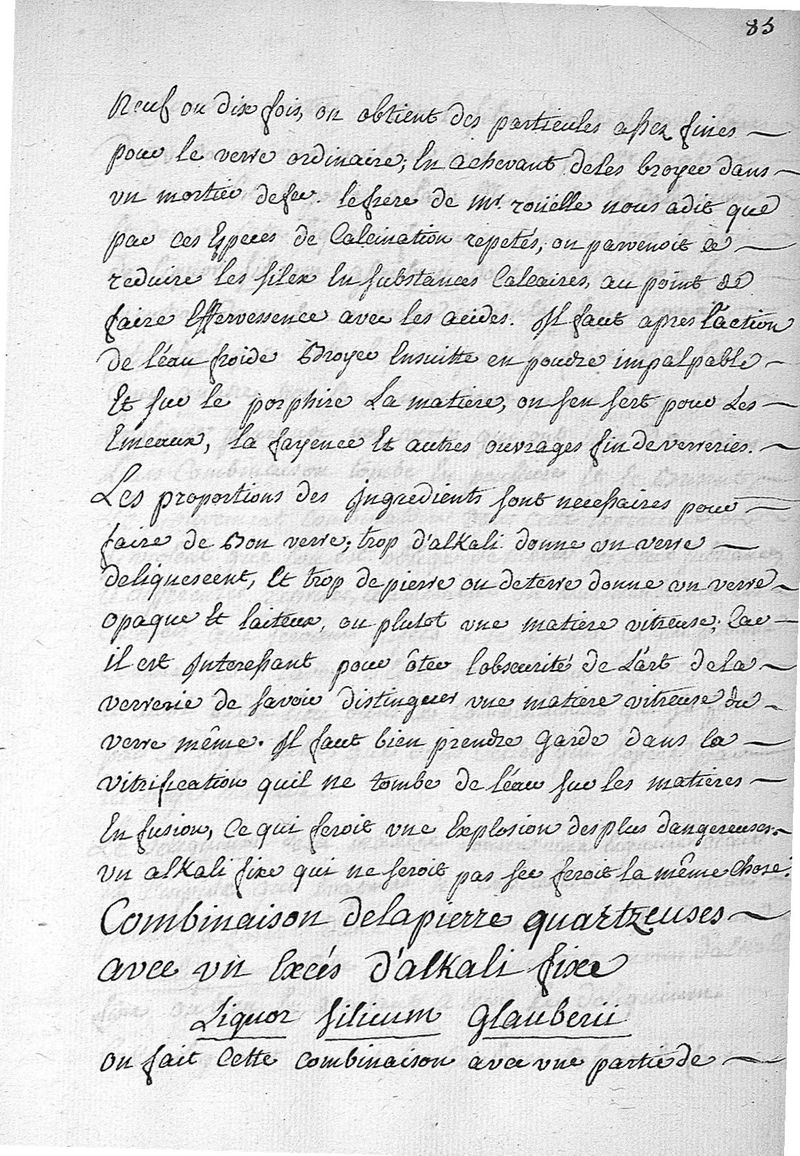 85
Neuf ou dix fois, on obtient des particules assez fines
pour le verre ordinaire; En achevant deles broyer dans
un mortier defer. le frere de Mr. roüelle nous adit que
par ces Especes de Calcination repetés, on parvenoit a
reduire les silex En substances Calcaires, au point de
faire Effervessence avec les acides. Il faut apres l'action
de l'éau froide Broyer Ensuitte en poudre impalpable
Et sur le porphire La matiere, on sen sert pour Les
Emeaux, la fayence Et autres ouvrages fin de verreries.
Les proportions des ingredients sont necessaires pour
faire de Bon verre; trop d'alkali donne un verre
deliquescent, Et trop de pierre ou de terre donne un verre
opaque Et laiteux, ou plutot une matiere vitreuse; Car
il est interessant pour ôter l'obscurité de L'art dela
verrerie de savoir distinguer une matiere vitreuse du
verre même. Il faut bien prendre Garde dans la
vitrification quil ne tombe de l'éau sur les matieres
En fusion, Ce qui feroit une Explosion des plus dangereuses.
un alkali fixe qui ne seroit pas sec feroit la même Chose.
Combinaison delapierre quartzeuses
avec un Excés d'alkali fixe
Liquor silicum Glauberii
on fait Cette Combinaison avec une partie de